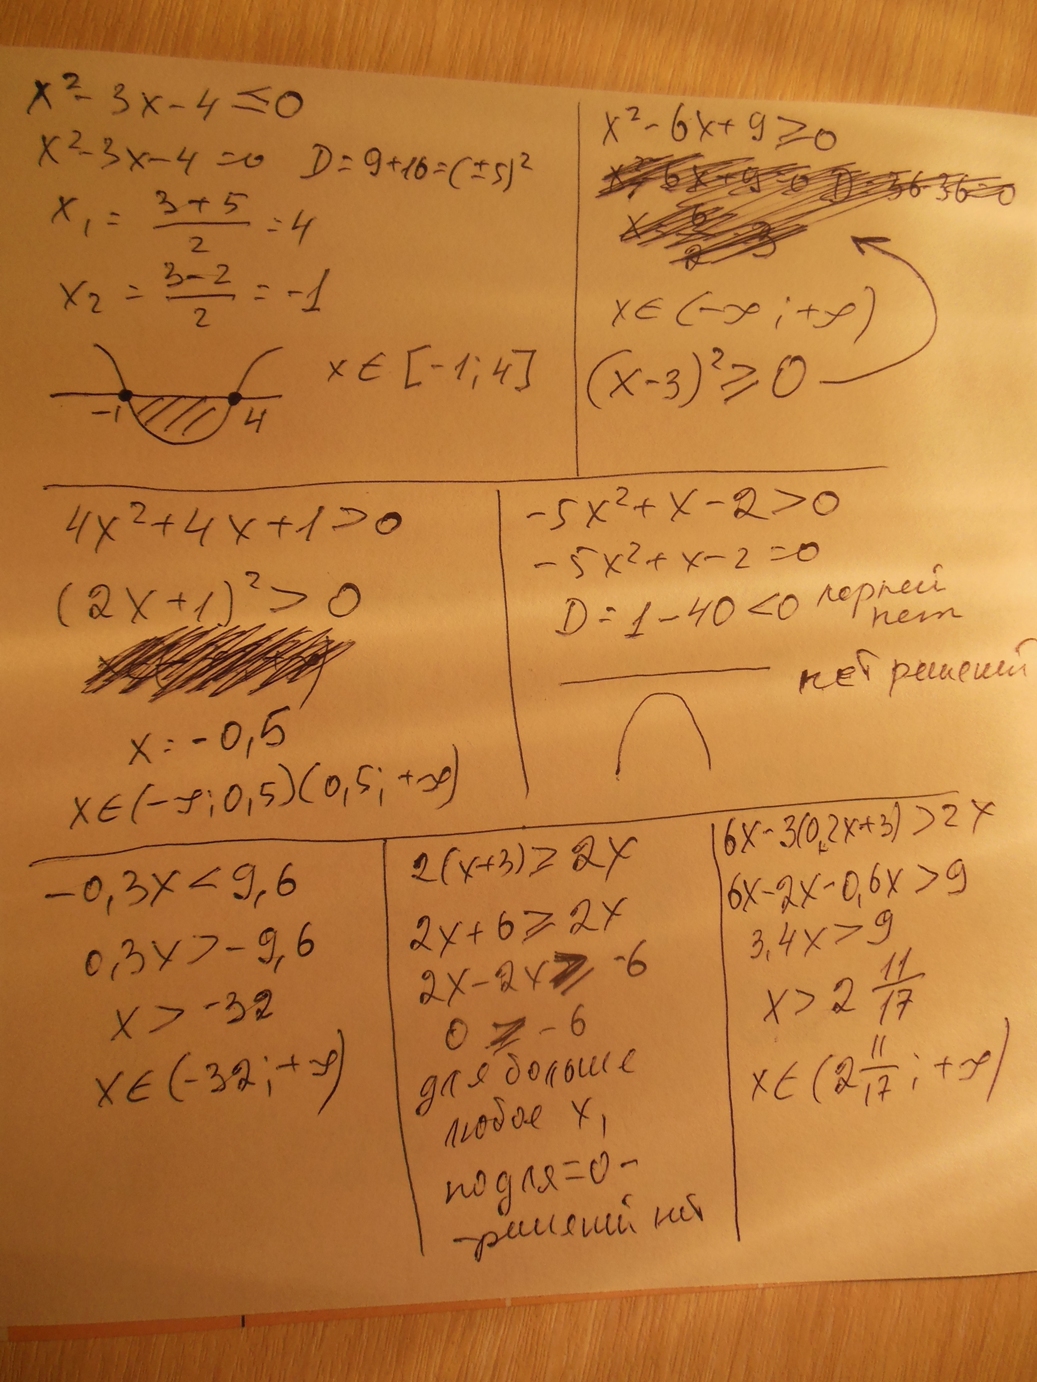 x² - 3x - 4 ≤ 0
x² - 3x - 4 = 0 D = 9+16 = (±5)²
x₁ = (3+5)/2 = 4
x₂ = (3-2)/2 = -1
x ∈ [-1; 4]
-1 4
x² - 6x + 9 ≥ 0
x² - 6x + 9 = 0 D = 36-36 = 0
x ∈ (-∞; +∞)
(x-3)² ≥ 0
4x² + 4x + 1 > 0
(2x+1)² > 0
x = -0,5
x ∈ (-∞; 0,5)(0,5; +∞)
-5x² + x - 2 > 0
-5x² + x - 2 = 0
D = 1 - 40 < 0 корней
нет
нет решений
-0,3x < 9,6
0,3x > -9,6
x > -32
x ∈ (-32; +∞)
2(x+3) ≥ 2x
2x + 6 ≥ 2x
2x - 2x ≥ -6
0 ≥ -6
для больше
любое x,
но для = 0 -
- решений нет
6x - 3(0,2x+3) > 2x
6x - 2x - 0,6x > 9
3,4x > 9
x > 2 11/17
x ∈ (2 11/17; +∞)